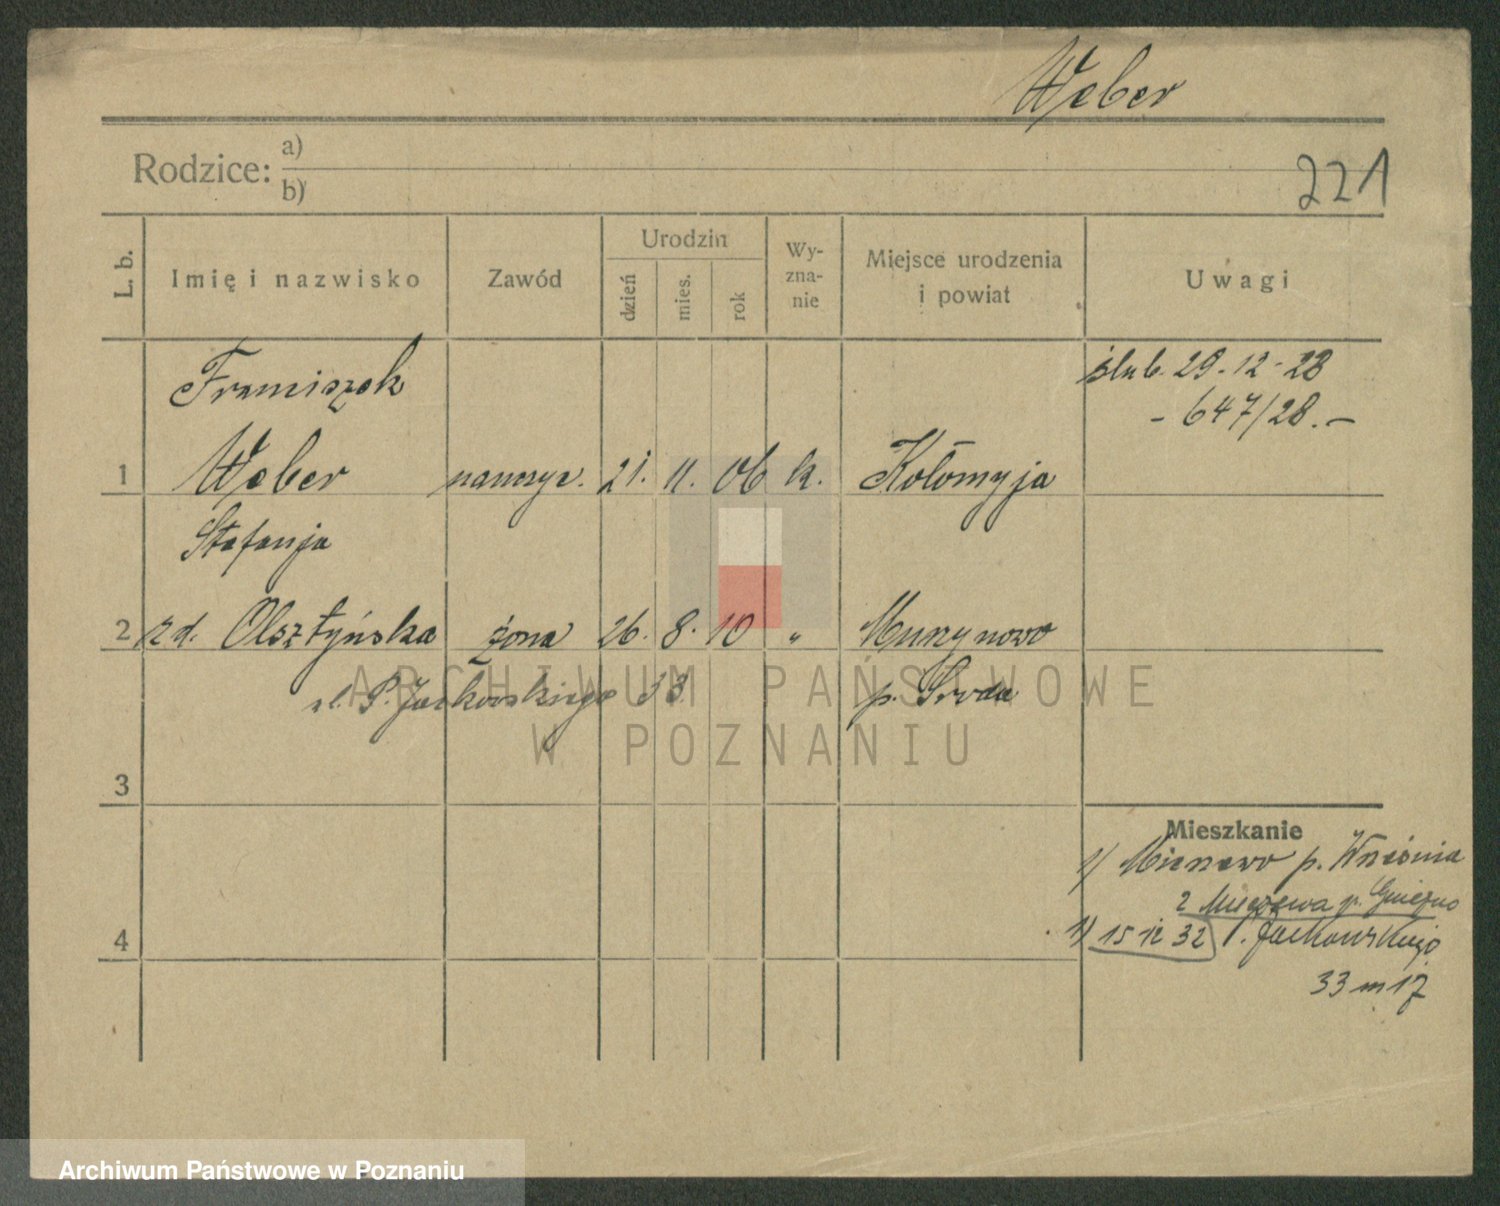 Weber
Rodzice: a)
b)
221
L. b.
Imię i nazwisko
Zawód
Urodzin
dzień
mies.
rok
Wy-
zna-
nie
Miejsce urodzenia
i powiat
Uwagi
Franciszek
ślub. 29-12-28
- 647/28.-
1 Weber nauczyc. 21. 11. 06 k. Kołomyja
Stefanja
2 zd. Olsztyńska żona 26. 8. 10 " Murzynowo
ul. P. Jackowskiego 33 p. Środa
ARCHIWUM PAŃSTWOWE
W POZNANIU
3
Mieszkanie
1/ p. Września
2 p. Gniezno
4
1) 15 12 32 P. Jackowskiego
33 m 17
Archiwum Państwowe w Poznaniu